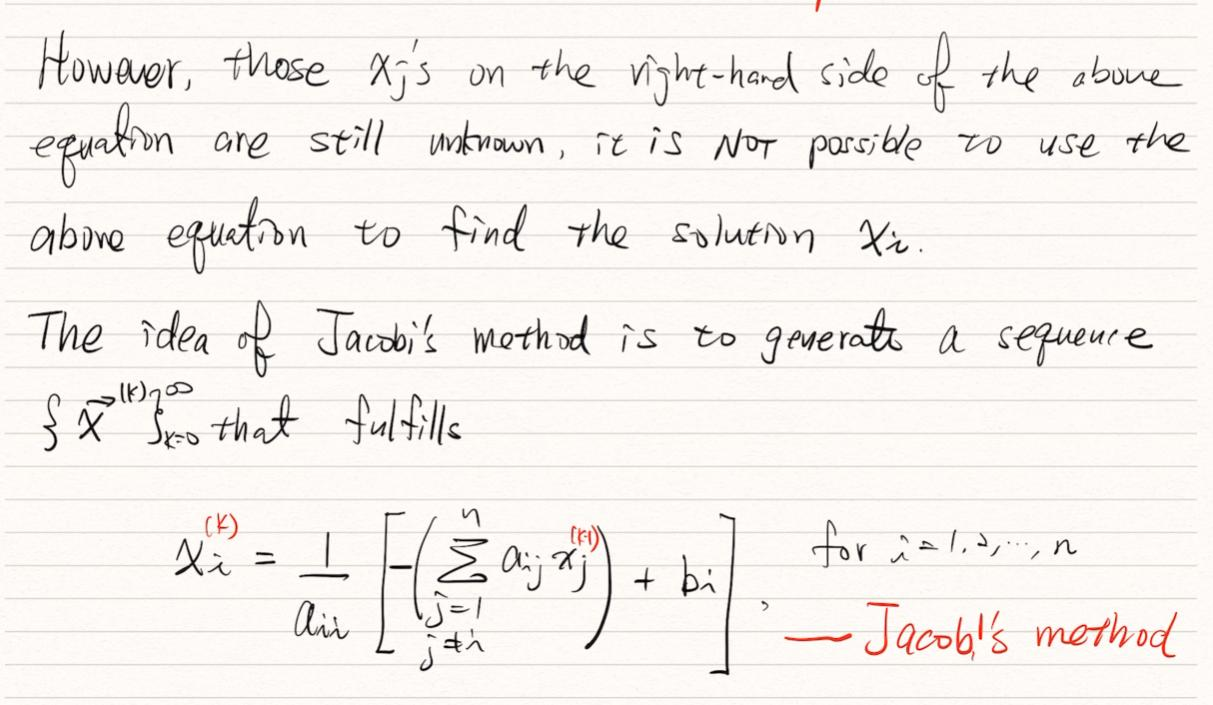 However, those xj's on the right-hand side of the above
equation are still unknown, it is NOT possible to use the
above equation to find the solution xi.
The idea of Jacobi's method is to generate a sequence
{x⃗^(k)}_{k=0}^∞ that fulfills
xi^(k) = 1/aii [-(∑_{j=1, j≠i}^n aij xj^(k-1)) + bi], for i=1,2,…,n
— Jacobi's method